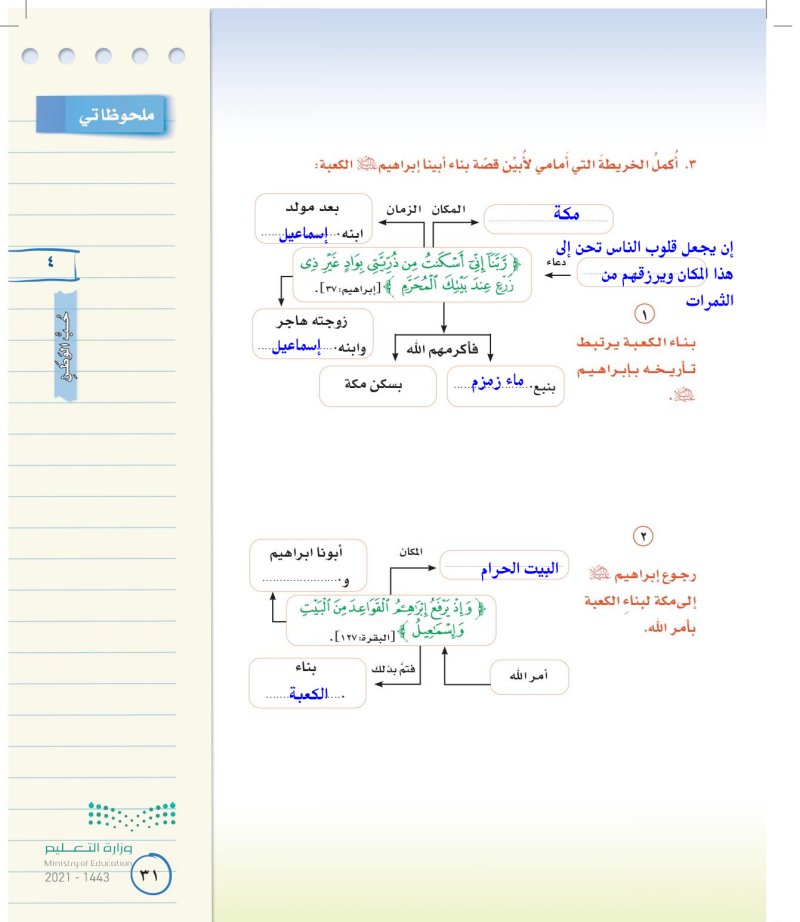 ملحوظاتي
٣. أُكملُ الخريطةَ التي أَمامي لأُبيْن قصّة بناء أبينا إبراهيم ﷺ الكعبة:
مكة
المكان
الزمان
بعد مولد
ابنه. إسماعيل
إن يجعل قلوب الناس تحن إلى
هذا المكان ويرزقهم من
الثمرات
دعاء
﴿ رَّبَّنَآ إِنِّيٓ أَسْكَنتُ مِن ذُرِّيَّتِي بِوَادٍ غَيْرِ ذِي
زَرْعٍ عِندَ بَيْتِكَ ٱلْمُحَرَّمِ ﴾ [إبراهيم: ٣٧].
١
بناء الكعبة يرتبط
تأريخه بإبراهيم
ﷺ.
زوجته هاجر
وابنه. إسماعيل
فأكرمهم الله
بنبع. ماء زمزم
بسكن مكة
٤
حُبُّ الوَطَنِ
٢
رجوع إبراهيم ﷺ
إلى مكة لبناءِ الكعبة
بأمر الله.
البيت الحرام
المكان
أبونا ابراهيم
و.
﴿ وَإِذْ يَرْفَعُ إِبْرَٰهِـۧمُ ٱلْقَوَاعِدَ مِنَ ٱلْبَيْتِ
وَإِسْمَٰعِيلُ ﴾ [البقرة: ١٢٧].
أمر الله
فتمَّ بذلك
بناء
الكعبة
وزارة التعليم
Ministry of Education
2021 - 1443
٣١